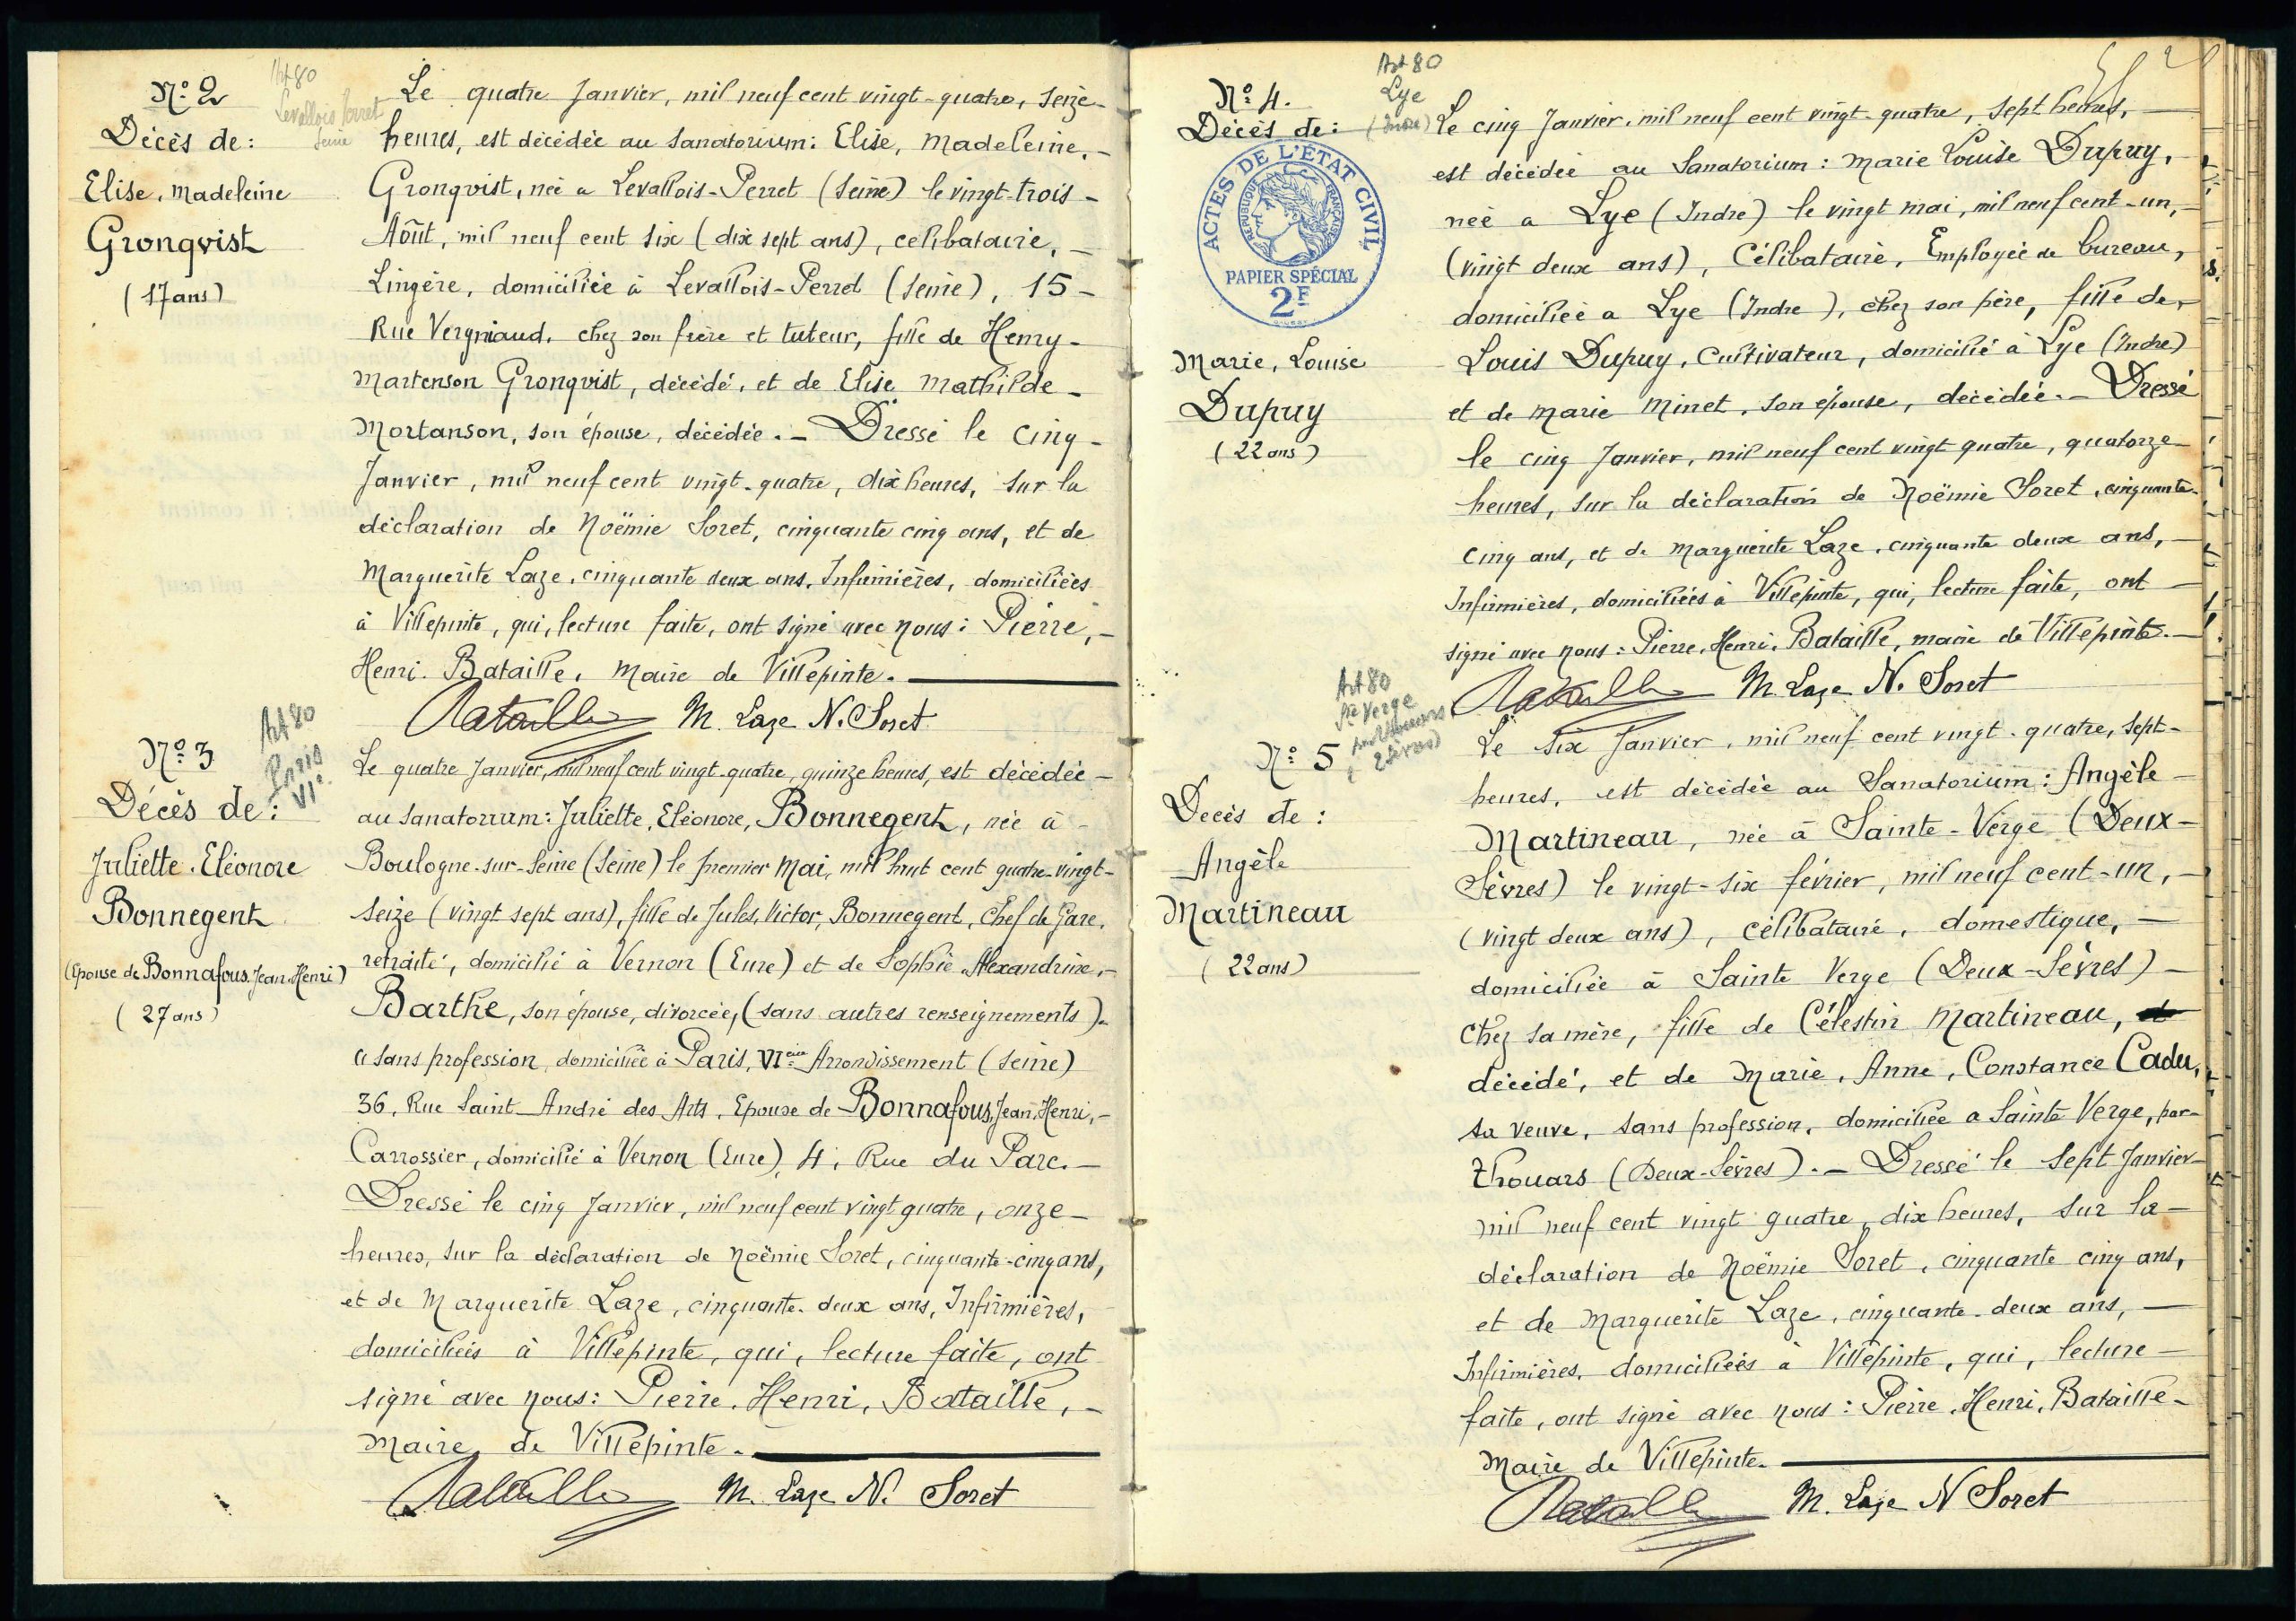 Nº 2
Art 80
Levallois Perret
Seine
Décès de:
Elise, Madeleine
Gronqvist
(17 ans)
Le quatre Janvier, mil neuf cent vingt-quatre, seize-
heures, est décédée au Sanatorium: Elise, Madeleine,-
Gronqvist, née a Levallois-Perret (Seine) le vingt-trois-
Août, mil neuf cent six (dix sept ans), celibataire,-
Lingère, domiciliée à Levallois-Perret (Seine), 15-
Rue Vergniaud, chez son frère et tuteur, fille de Henry-
Martenson Gronqvist, décédé, et de Elise Mathilde-
Mortanson, son épouse, décédée.- Dressé le cinq-
Janvier, mil neuf cent vingt-quatre, dix heures, sur la
déclaration de Noëmie Soret, cinquante cinq ans, et de
Marguerite Laze, cinquante deux ans, Infirmières, domiciliées
à Villepinte, qui, lecture faite, ont signé avec nous: Pierre,-
Henri. Bataille, Maire de Villepinte.
Bataille M. Laze N. Soret
Nº 3
Art 80
Paris
VIe
Décès de:
Juliette. Eléonore
Bonnegent
(Epouse de Bonnafous. Jean. Henri)
(27 ans)
Le quatre Janvier, mil neuf cent vingt-quatre, quinze heures, est décédée-
au Sanatorium: Juliette, Eléonore, Bonnegent, née à-
Boulogne-sur-Seine (Seine) le premier Mai, mil huit cent quatre-vingt-
seize (vingt sept ans), fille de Jules, Victor, Bonnegent, Chef de Gare,
retraité, domicilié à Vernon (Eure) et de Sophie Alexandrine,-
Barthe, son épouse, divorcée, (sans autres renseignements).
a sans profession, domiciliée à Paris, VIeme Arrondissement (Seine)
36, Rue Saint-André des Arts, Epouse de Bonnafous, Jean, Henri,-
Carrossier, domicilié à Vernon (Eure), 4, Rue du Parc.-
Dressé le cinq Janvier, mil neuf cent vingt quatre, onze-
heures, sur la déclaration de Noëmie Soret, cinquante-cinq ans,
et de Marguerite Laze, cinquante-deux ans, Infirmières,
domiciliées à Villepinte, qui, lecture faite, ont
signé avec nous: Pierre, Henri, Bataille,-
Maire de Villepinte.
Bataille M. Laze N. Soret
Nº 4.
Art 80
Lye
(Indre)
Décès de:
ACTES DE L'ÉTAT CIVIL
REPUBLIQUE FRANÇAISE
PAPIER SPÉCIAL
2F
Marie, Louise
Dupuy
(22 ans)
2
Le cinq Janvier, mil neuf cent vingt-quatre, sept heures,-
est décédée au Sanatorium: Marie Louise Dupuy,
née a Lye (Indre) le vingt mai, mil neuf cent-un,-
(vingt deux ans), Célibataire, Employée de bureau,
domiciliée a Lye (Indre), chez son père, fille de,-
Louis Dupuy, Cultivateur, domicilié à Lye (Indre)
et de Marie Minet, son épouse, décédée.- Dressé
le cinq Janvier, mil neuf cent vingt quatre, quatorze-
heures, sur la déclaration de Noëmie Soret, cinquante-
cinq ans, et de Marguerite Laze, cinquante deux ans,-
Infirmières, domiciliées à Villepinte, qui, lecture faite, ont-
signé avec nous: Pierre, Henri, Bataille, maire de Villepinte.-
Bataille M. Laze N. Soret
Art 80
Ste Verge
(2 Sèvres)
Nº 5
Decès de:
Angèle
Martineau
(22 ans)
Le six Janvier, mil neuf cent vingt-quatre, sept-
heures, est décédée au Sanatorium: Angèle-
Martineau, née à Sainte-Verge (Deux-
Sèvres) le vingt-six février, mil neuf cent-un,-
(vingt deux ans), célibataire, domestique,-
domiciliée à Sainte Verge (Deux-Sèvres)-
chez sa mère, fille de Célestin Martineau, et
décédé, et de Marie, Anne, Constance Cadu,
sa veuve, sans profession, domiciliée a Sainte Verge, par-
Thouars (Deux-Sèvres).- Dressé le sept Janvier-
mil neuf cent vingt quatre, dix heures, sur la-
déclaration de Noëmie Soret, cinquante cinq ans,
et de Marguerite Laze, cinquante-deux ans,-
Infirmières, domiciliées à Villepinte, qui, lecture-
faite, ont signé avec nous: Pierre, Henri, Bataille-
Maire de Villepinte.
Bataille M. Laze N Soret